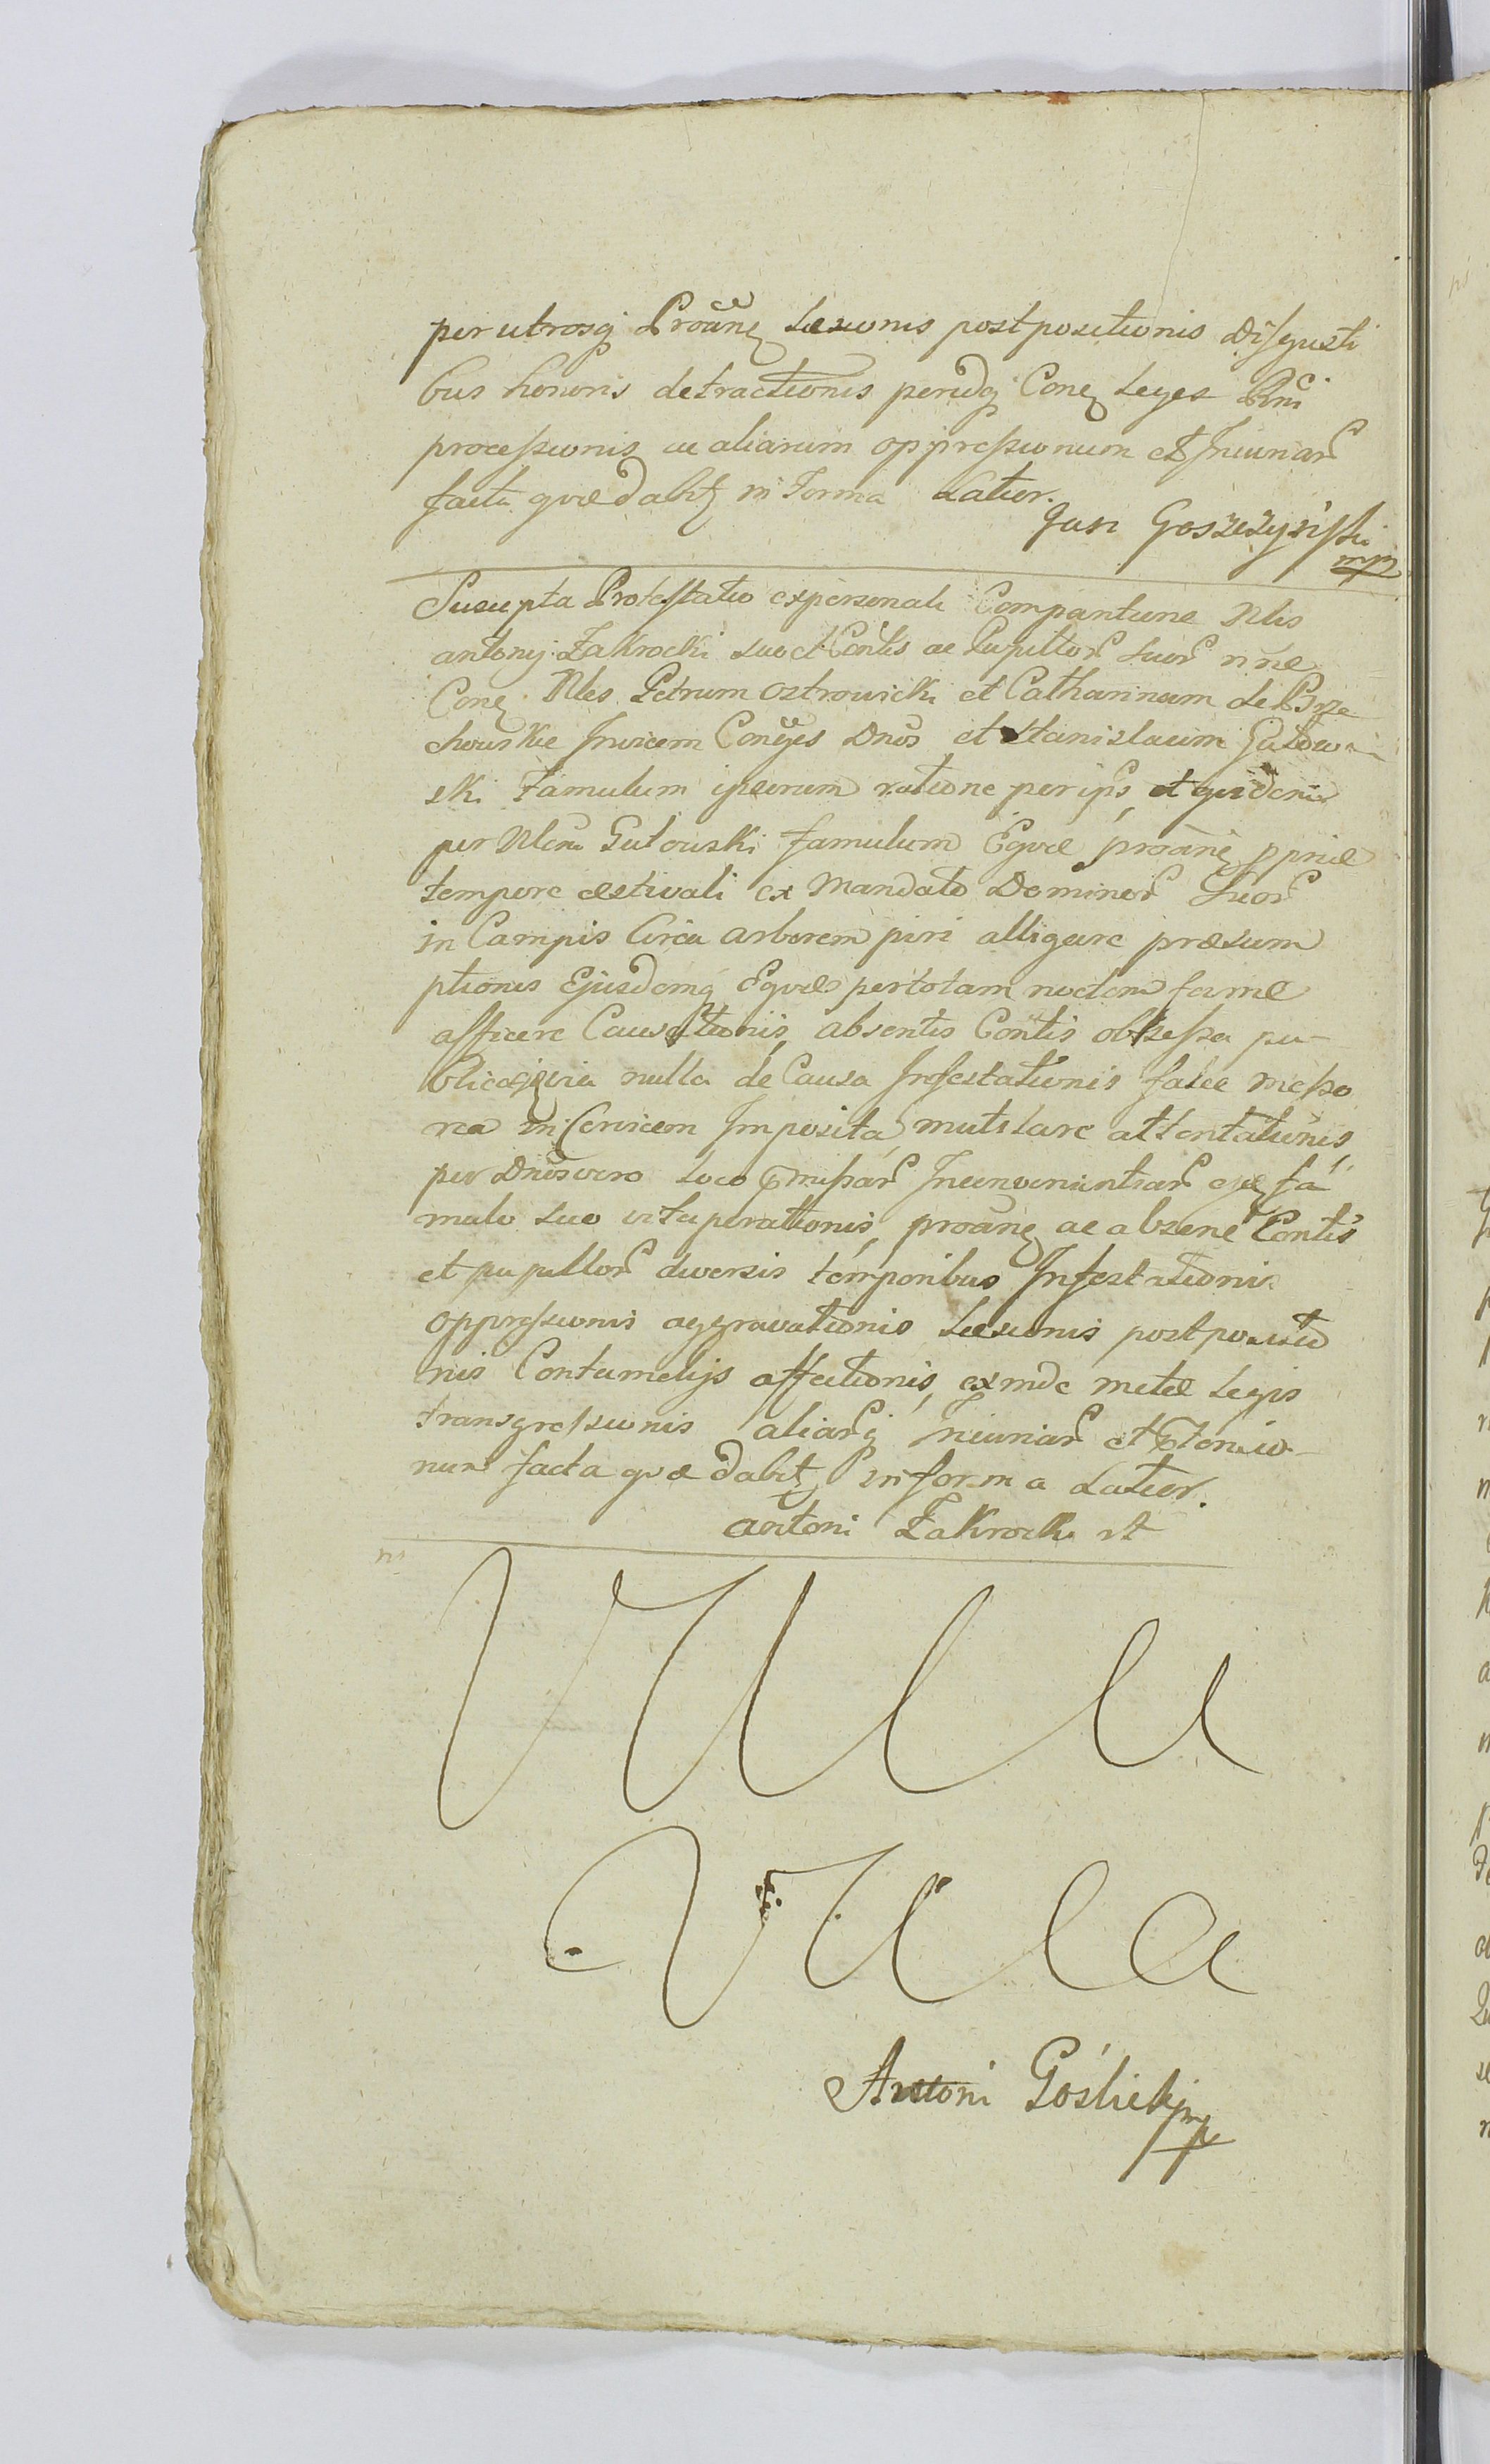 per utrosq Proane Laesionis postpositionis disgusti
bus honoris detractionis peridq Cone Leges Pnci
processionis ac aliarum oppressionum et Iniuriar
facta quae dabit in Forma Latior.
Jan Goszczyński
mp
Suscepta Protestatio ex personali Comparitione Nlis
antonij Zakrocki suo et Contis ac Pupillor suor nne
Cone Nles Petrum Ostrowicki et Catharinam de Brze
chowskie Invicem Conges Dnos et Stanislaum Gutow
ski Famulum ipsorum ratione per ips et quidem
per Nlem Gutowski famulum Equae proane ppriae
tempore aestivali ex Mandato Dominor Suor
in Campis Circa arborem piri alligare praesum
ptionis Ejusdemq Equae per totam noctem fame
afficere Causationis, absentis Contis obsessa pu-
blicaq via nulla de Causa Infestationis falce messo
rea in Cervicem Imposita mutilare attentationis
per Dnos vero loco Inconvenientiar fa
mulo suo vituperationis, proane ac absene Contis
et pupillor diversis temporibus Infestationis
oppressionis aggravationis Laesionis postpositio
nis Contumelijs affectionis, exinde metae Legis
transgressionis aliarq Iniuriar et
num facta quae dabit in forma Latior.
Antoni Zakrocki
Antoni Goślickj mp